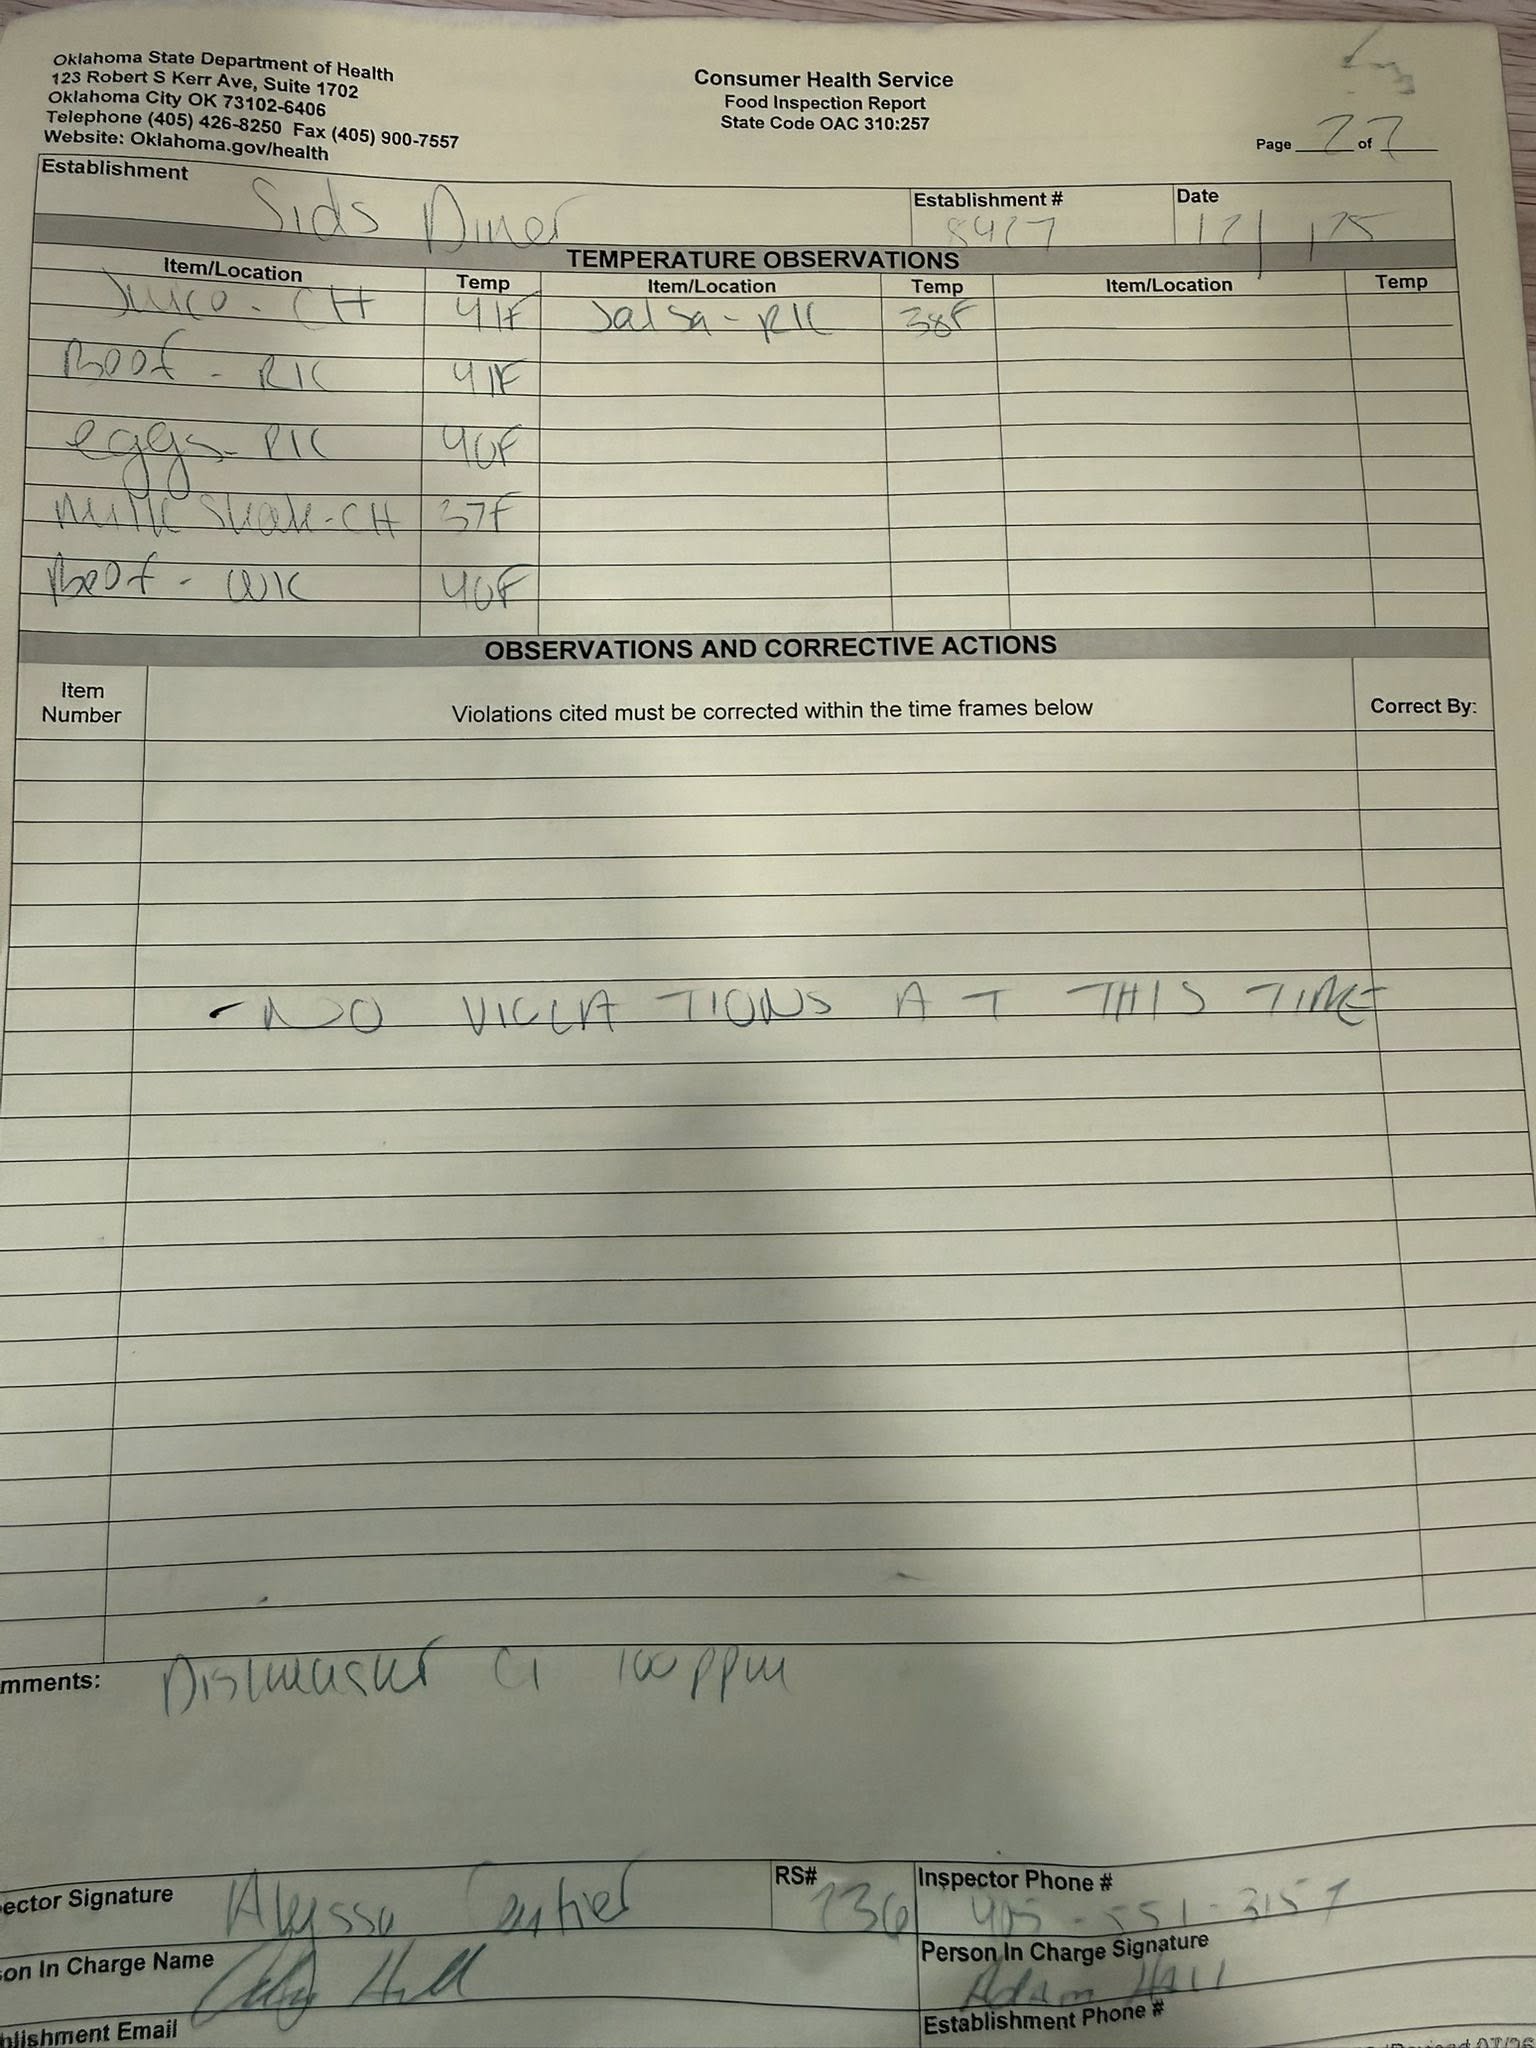 Oklahoma State Department of Health
123 Robert S Kerr Ave, Suite 1702
Oklahoma City OK 73102-6406
Telephone (405) 426-8250 Fax (405) 900-7557
Website: Oklahoma.gov/health
Consumer Health Service
Food Inspection Report
State Code OAC 310:257
Page 2 of 2
Establishment Sids Diner
Establishment #
Date 12/1/25
TEMPERATURE OBSERVATIONS
Item/Location Temp Item/Location Temp Item/Location Temp
Juice - CH 41F Salsa - RIC 38F
Beef - RIC 41F
eggs - RIC 40F
Milk Shake - CH 37F
Beef - WIC 40F
OBSERVATIONS AND CORRECTIVE ACTIONS
Item Number Violations cited must be corrected within the time frames below Correct By:
- NO VIOLATIONS AT THIS TIME
mments: Dishwasher Cl 100ppm
ector Signature Alyssa
RS# 236
Inspector Phone # 405-551-3157
son In Charge Name Hall
Person In Charge Signature Adam Hall
blishment Email
Establishment Phone #